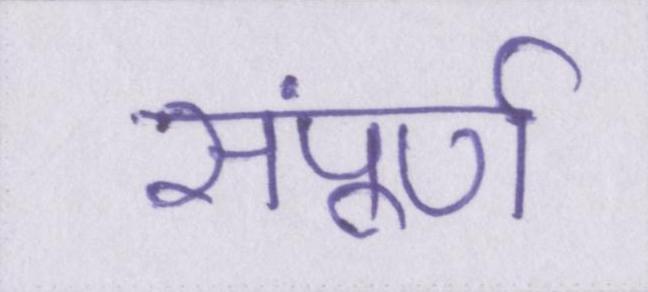 संपूर्ण